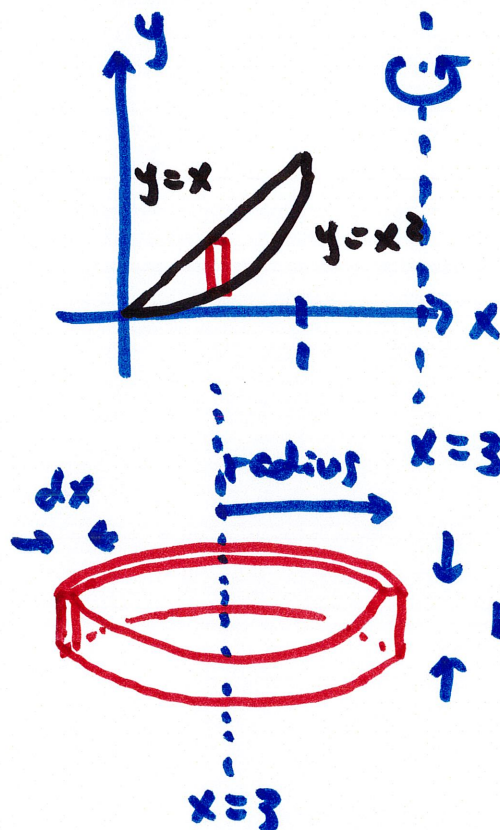 y
y=x
y=x²
x
x=3
radius
dx
x=3